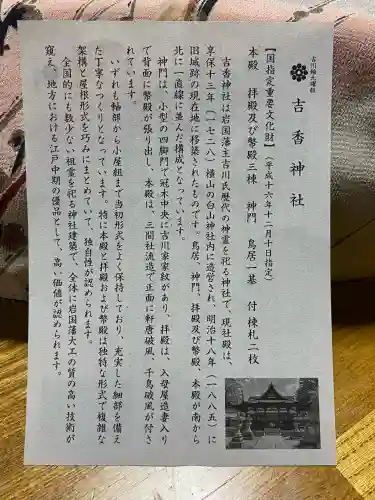 吉川軸九曜紋
吉香神社
【国指定重要文化財】（平成十六年十二月十日指定）
本殿　拝殿及び幣殿三棟　神門　鳥居一基　付　棟札二枚
吉香神社は岩国藩主吉川氏歴代の神霊を祀る神社で、現社殿は、
享保十三年（一七二八）横山の白山神社内に造営され、明治十八年（一八八五）に
旧城跡の現在地に移築されたものです。鳥居、神門、拝殿及び幣殿、本殿が南から
北に一直線に並んだ構成となっています。
神門は、小型の四脚門で冠木中央に吉川家家紋があり、拝殿は、入母屋造妻入り
で背面に幣殿が張り出し、本殿は、三間社流造で正面に軒唐破風、千鳥破風が付さ
れています。
いずれも軸部から小屋組まで当初形式をよく保持しており、充実した細部を備え
た丁寧なつくりとなっています。特に本殿と拝殿および幣殿は独特な形式で複雑な
架構と屋根形式を巧みにまとめていて、独自性が認められます。
全国的にも数少ない祖霊を祀る神社建築で、全体に岩国藩大工の質の高い技術が
窺え、地方における江戸中期の優品として、高い価値が認められます。